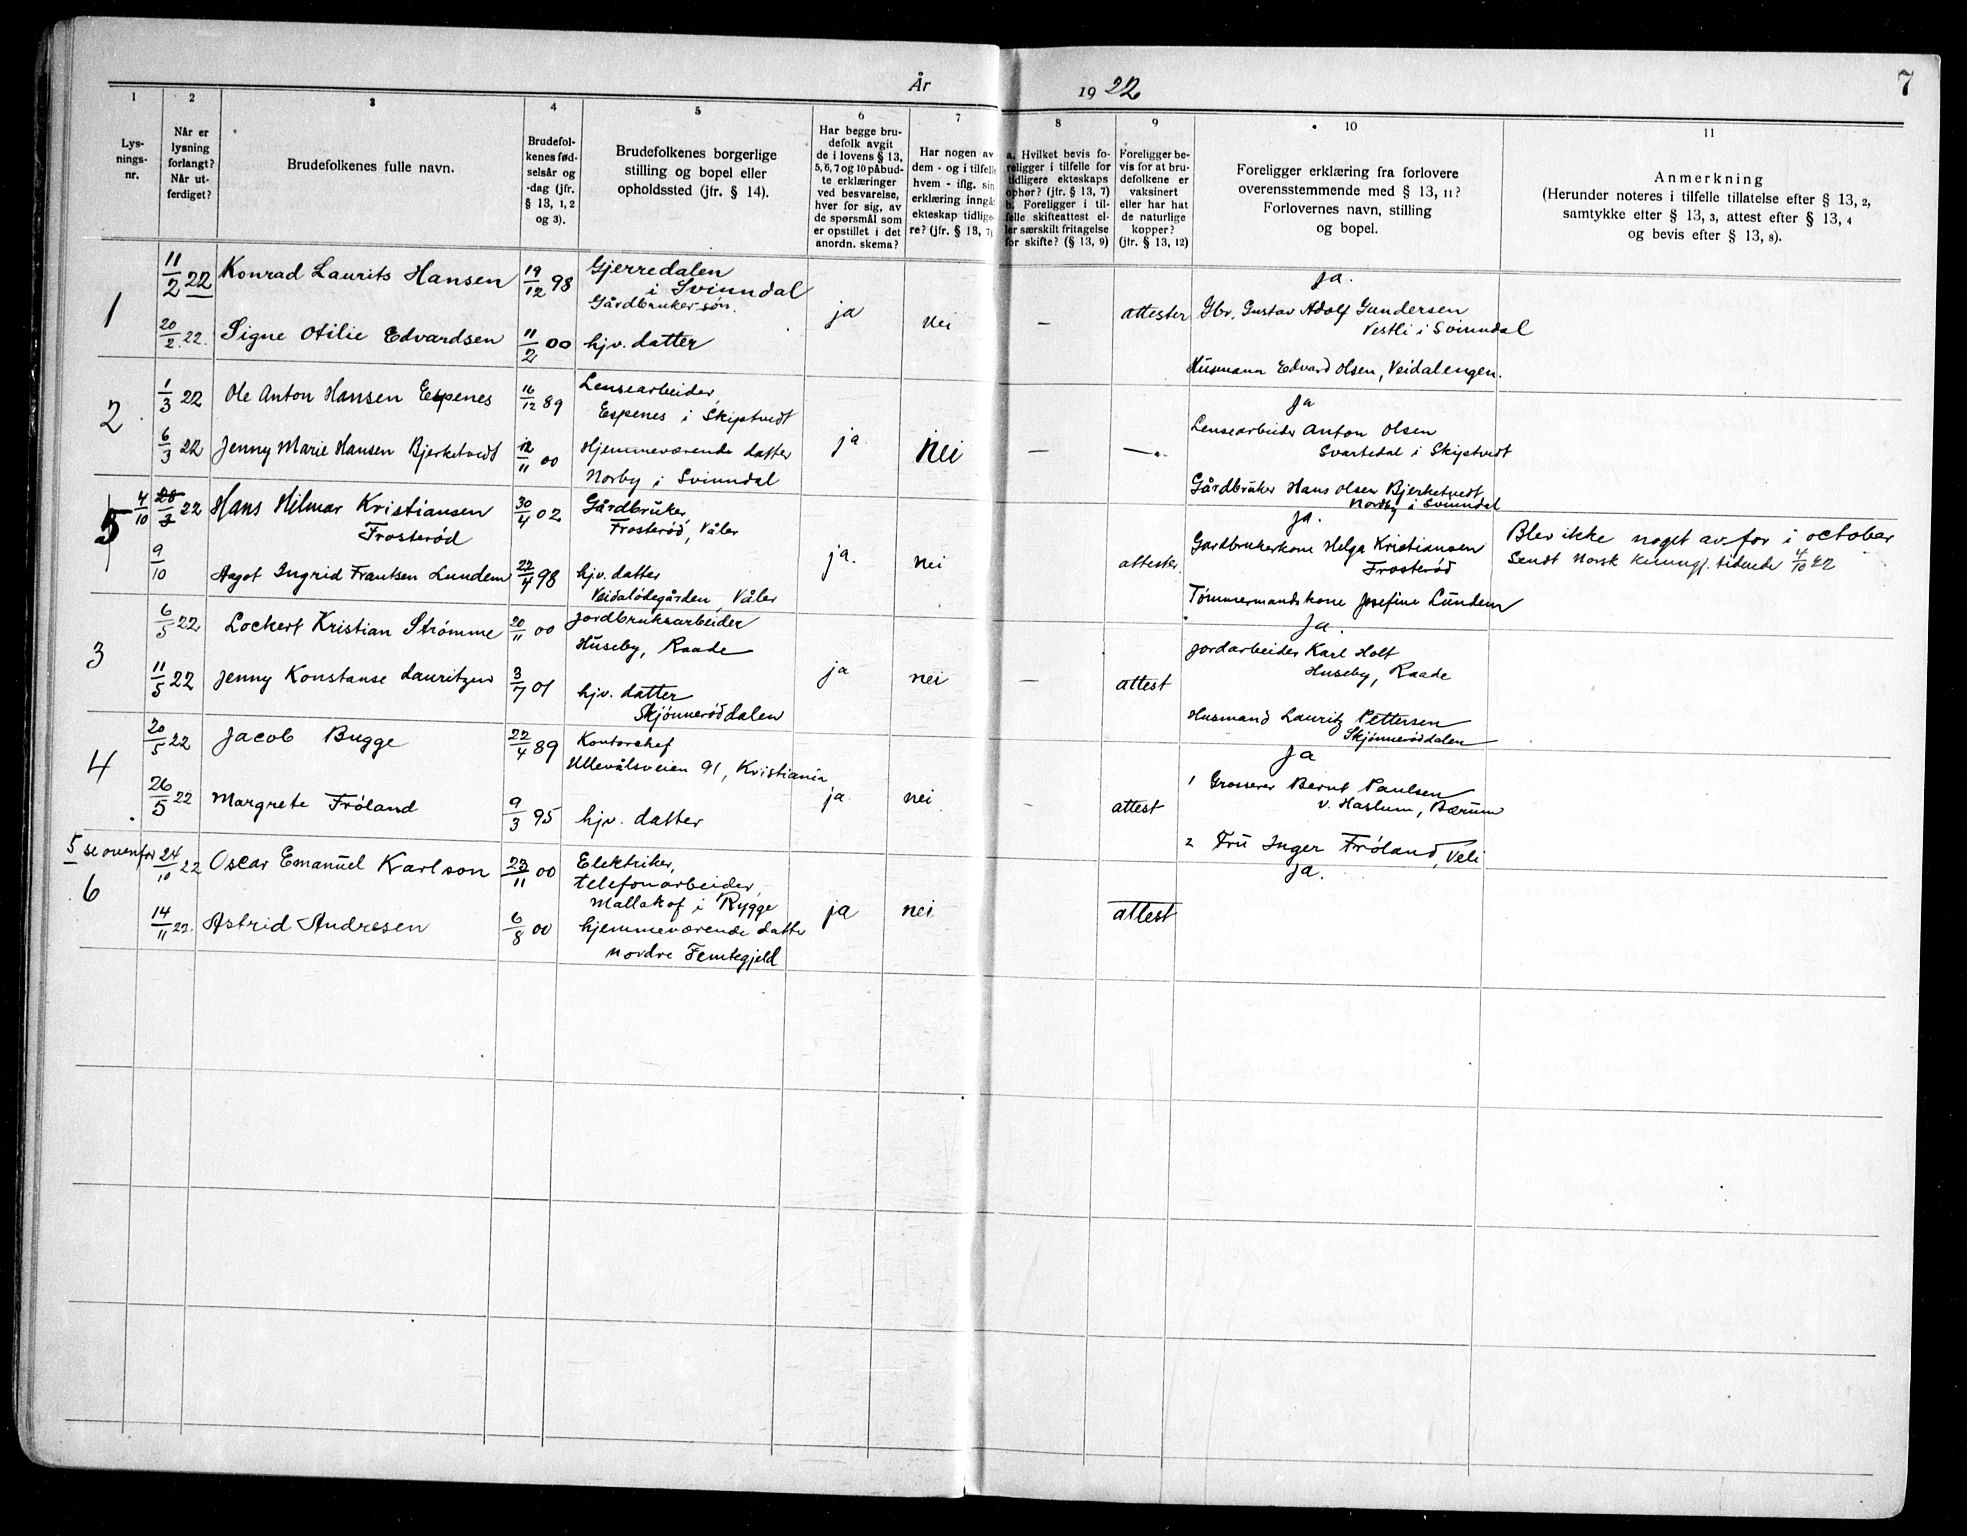 År 1922
7
1 2 3 4 5 6 7 8 9 10 11
Lys-
nings-
nr.
Når er
lysning
forlangt?
Når ut-
ferdiget?
Brudefolkenes fulle navn.
Brudefol-
kenes fød-
selsår og
-dag (jfr.
§ 13, 1, 2
og 3).
Brudefolkenes borgerlige
stilling og bopel eller
opholdssted (jfr. § 14).
Har begge bru-
defolk avgit
de i lovens § 13,
5, 6, 7 og 10 påbud-
te erklæringer
ved besvarelse,
hver for sig, av
de spørsmål som
er opstillet i det
anordn. skema?
Har nogen av
dem - og i tilfelle
hvem - iflg. sin
erklæring inngå
ekteskap tidlige-
re? (jfr. § 13, 7)
a. Hvilket bevis fo-
religger i tilfelle for
tidligere ekteskaps
ophør? (jfr. § 13, 7)
b. Foreligger i til-
felle skifteattest el-
ler særskilt fritagelse
for skifte? (§ 13, 9)
Foreligger be-
vis for at bru-
defolkene er
vaksinert
eller har hat
de naturlige
kopper?
(jfr. § 13, 12)
Foreligger erklæring fra forlovere
overensstemmende med § 13, 11?
Forlovernes navn, stilling
og bopel.
Anmerkning
(Herunder noteres i tilfelle tillatelse efter § 13, 2,
samtykke efter § 13, 3, attest efter § 13, 4
og bevis efter § 13, 8).
1
11/2 22 Konrad Laurits Hansen 19/12 98 Gjerredalen
i Svinndal
Gårdbrukersøn.
20/2 22. Signe Otilie Edvardsen 11/2 00 hjv. datter
ja nei — attester
ja.
Gbr. Gustav Adolf Gundersen
Vestli i Svinndal
Husmann Edvard Olsen, Veidalengen.
2
1/3 22 Ole Anton Hansen Espenes 16/12 89 Lensearbeider,
Espenes i Skiptvedt
6/3 22 Jenny Marie Hansen Bjerketvedt 12/11 00 Hjemmeværende datter
Norby i Svinndal
ja nei — —"—
ja
Lensearbeider Anton Olsen
Svartedal i Skiptvedt
Gårdbruker Hans Olsen Bjerketvedt
Nordby i Svinndal
5
4/10 28/3 22 Hans Hilmar Kristiansen 30/4 02 Gårdbruker,
Frosterød Frosterød, Våler
9/10 Aagot Ingrid Frantsen Lundem 22/4 98 hjv. datter
Veidalødegården, Våler
ja. nei attester.
ja.
Gardbrukerkone Helga Kristiansen
Frosterød
Tømmermandskone Josefine Lundem
Blev ikke noget av før i october
Sendt Norsk Kunngj. tidende 4/10 22
3
6/5 22 Lockert Kristian Strømme 20/11 00 Jordbruksarbeider
Huseby, Raade
11/5 22 Jenny Konstanse Lauritzen 3/7 01 hjv. datter
Skjønnerøddalen
ja nei — attest
ja.
Jordarbeider Karl Holt
Huseby, Raade
Husmand Lauritz Pettersen
Skjønnerøddalen
4
20/5 22 Jacob Bugge 22/4 89 Kontorchef
Ullevålsveien 91, Kristiania
26/5 22 Margrete Frøland 9/3 95 hjv. datter
ja nei - attest
ja
1 Grosserer Bernt Paulsen
v. Haslum, Bærum
2 Fru Inger Frøland, Veli
5 se ovenfor
6
24/10 22 Oscar Emanuel Karlson 23/11 00 Elektriker,
telefonarbeider,
Mallakof i Rygge
14/11 22. Astrid Andresen 6/8 00 hjemmeværende datter
nordre Femtegjeld
ja nei attest
ja.